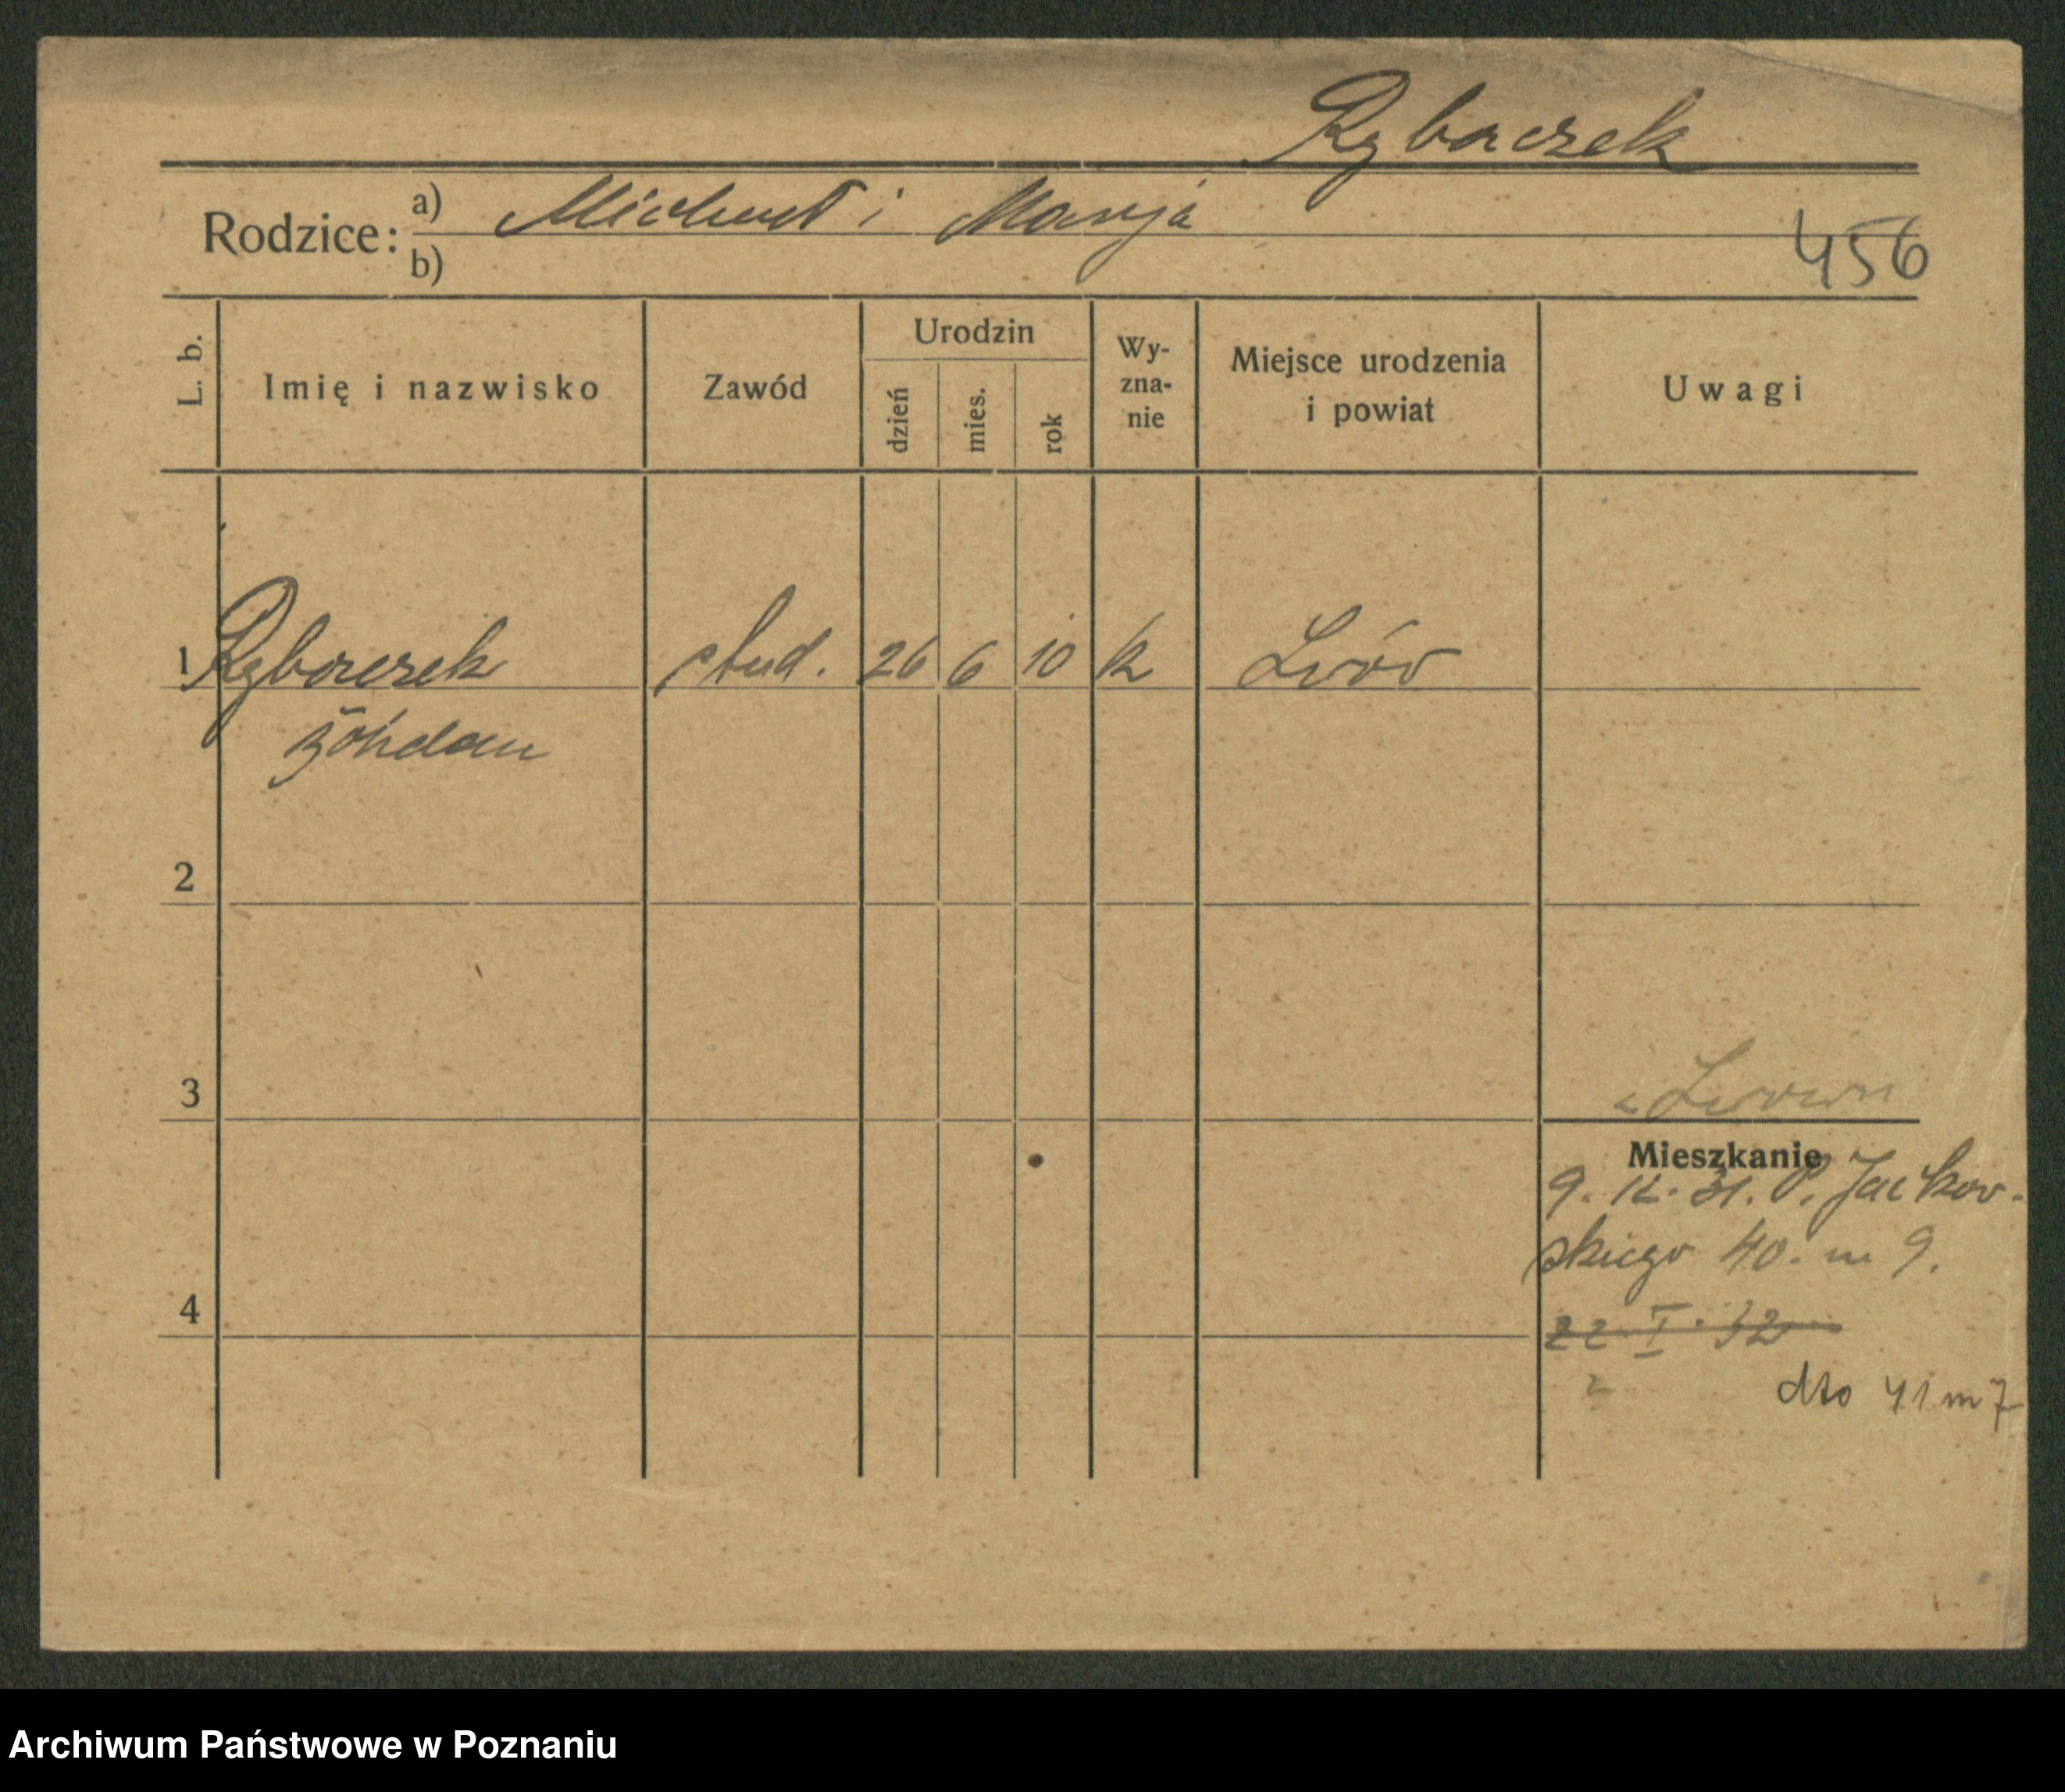 Rybaczek
Rodzice: a) Michał i Marja
b)
456
L. b.
Imię i nazwisko
Zawód
Urodzin
dzień
mies.
rok
Wy-
zna-
nie
Miejsce urodzenia
i powiat
Uwagi
1 Rybaczek stud. 26 6 10 k Lwów
Bohdan
2
3
Lwowa
Mieszkanie
9. 12. 31. P. Jackow-
skiego 40. m 9.
22 I 32
dto 41 m 7
4
Archiwum Państwowe w Poznaniu